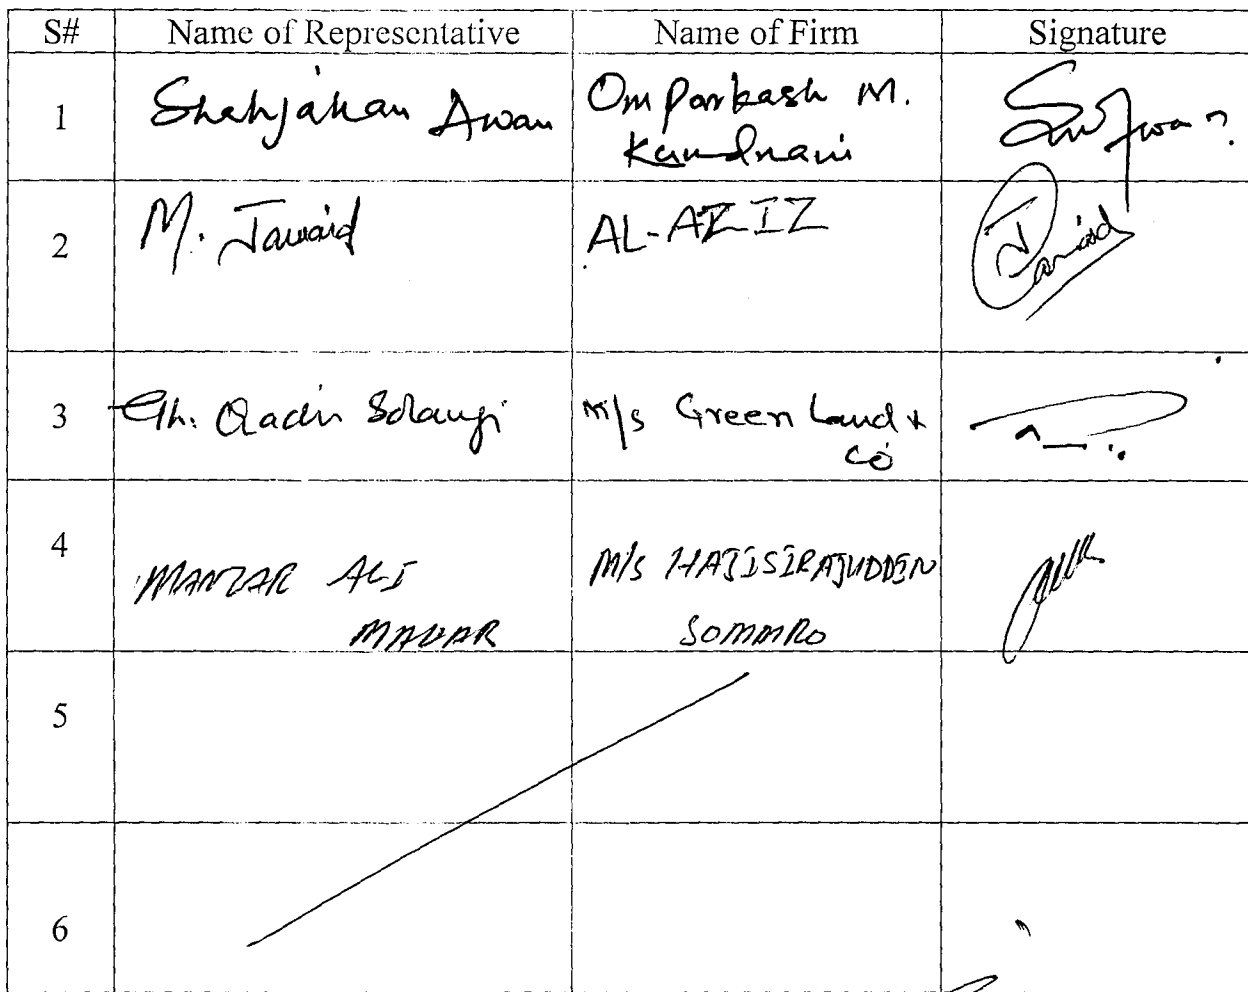 S# Name of Representative Name of Firm Signature
1 Shahjahan Awan Om Parkash M.
Kundnani
2 M. Jawaid AL-AZIZ Jawaid
3 Gh. Qadir Solangi M/s Green Land &
Co
4
MANZAR ALI M/S HAJISIRAJUDDIN
SOMMRO
5
6